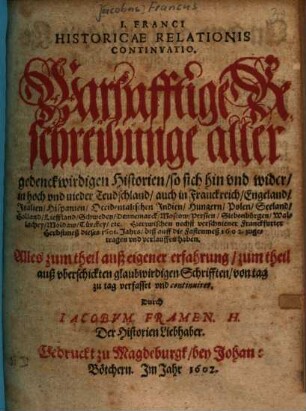 Jacobus Francus
I. FRANCI
HISTORICAE RELATIONIS
CONTINVATIO.
Warhafftige Be
schreibunge aller
gedenckwirdigen Historien / so sich hin vnd wider /
in hoch vnd nieder Teudschland / auch in Franckreich / Engeland /
Italien / Hispanien / Occidentalischen Indien / Hungern / Polen / Seeland /
Holland / Lieffland / Schweden / Dennemarck / Moscow / Persien / Siebenbürgen / Wal-
lachey / Moldaw / Türckey / etc. Hierzwischen nechst verschiener Franckfurter
Herbstmeß dieses 1601. Jahrs / biß auff die Fastenmeß 1602. zuge-
tragen vnd verlauffen haben.
Alles zum theil auß eigener erfahrung / zum theil
auß vberschickten glaubwirdigen Schrifften / von tag
zu tag verfasset vnd continuiret.
Durch
IACOBVM FRAMEN. H.
Der Historien Liebhaber.
Gedruckt zu Magdeburgk / bey Johan :
Bötchern. Im Jahr 1602.